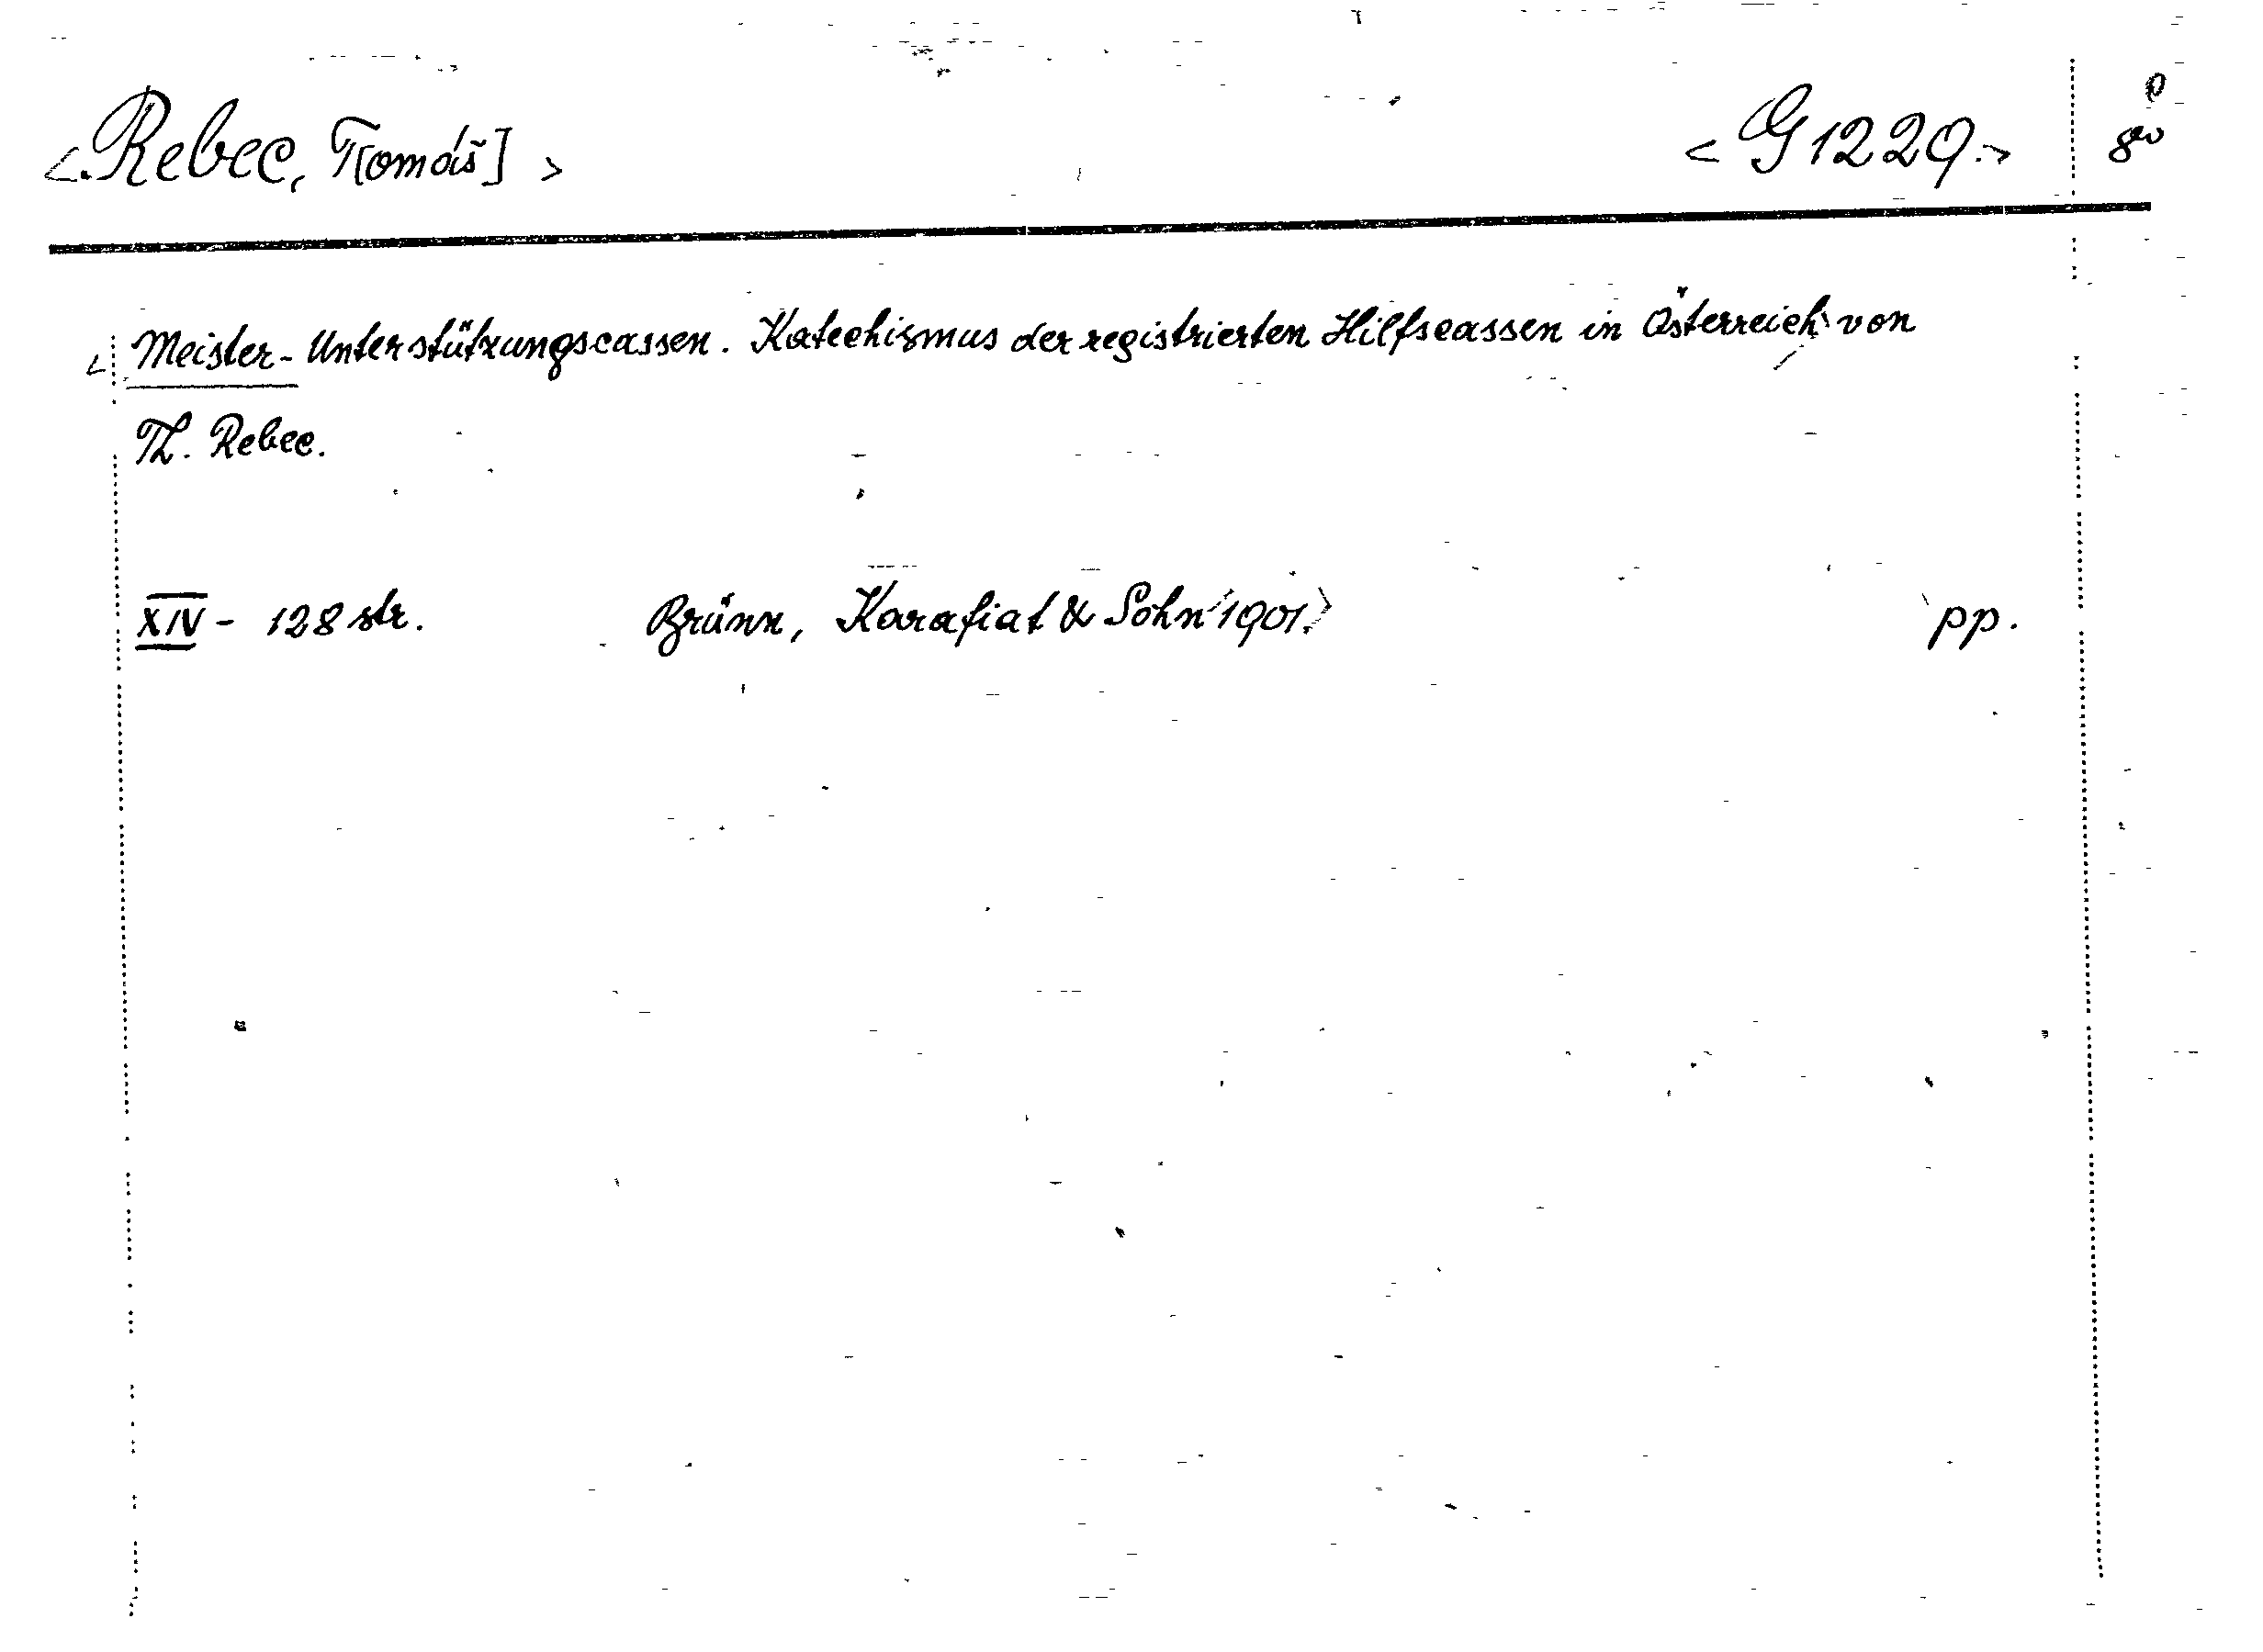 <Rebec, T[omáš]> <G 1229.> 8°
<Meister-Unterstützungscassen. Katechismus der registrierten Hilfscassen in Österreich von
Th. Rebec.
XIV - 128 str. Brünn, Karafiat & Sohn 1901.> pp.